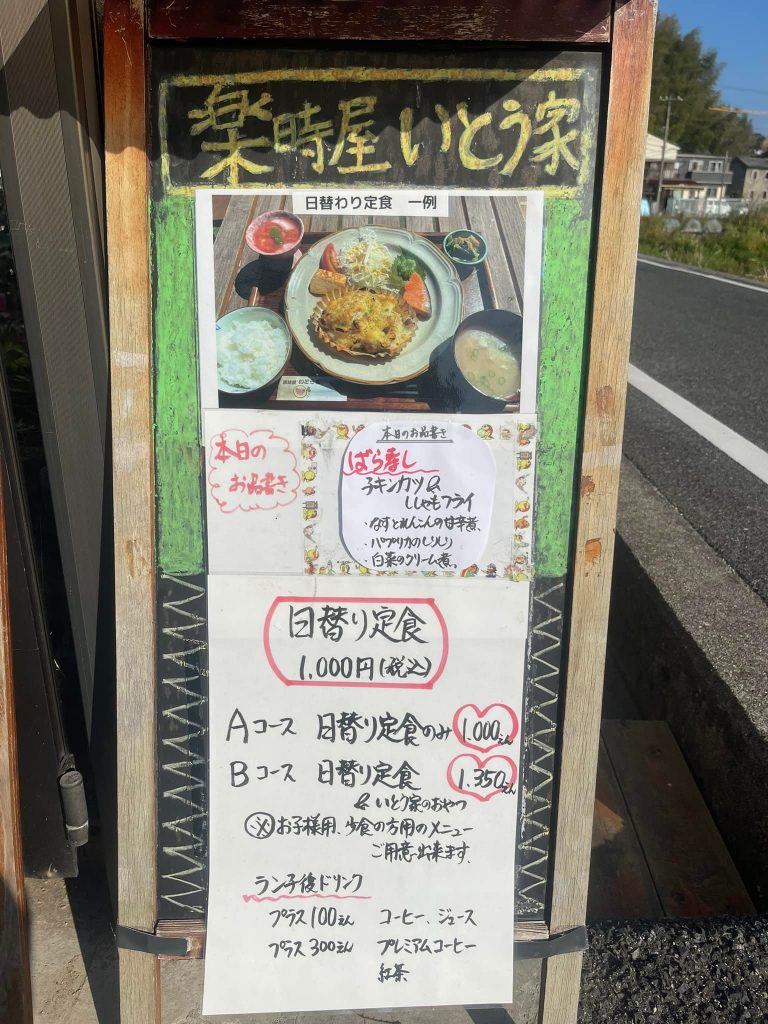 楽時屋 いとう家
日替わり定食 一例
本日の
お品書き
本日のお品書き
ばら寿し
チキンカツ&
ししゃもフライ
・なすとれんこんの甘辛煮、
・パプリカのしりしり
・白菜のクリーム煮、
日替り定食
1,000円(税込)
Aコース 日替り定食のみ 1.000えん
Bコース 日替り定食 1.350えん
& いとう家のおやつ
※お子様用、少食の方用のメニュー
ご用意出来ます。
ランチ後ドリンク
プラス100えん コーヒー、ジュース
プラス300えん プレミアムコーヒー
紅茶